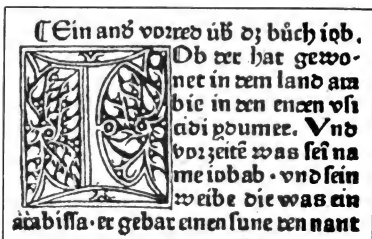 ⸿Ein and̛ vorred üb̛ dz bůch iob.
IOb der hat gewo⸗
net in dem land ara
bie in den enden vsi
tidi ydumee. Vnd
vorzeitē was sei̅ na
me iobab · vnd sein
weibe die was ein
arabissa · er gebar einen sune den nant